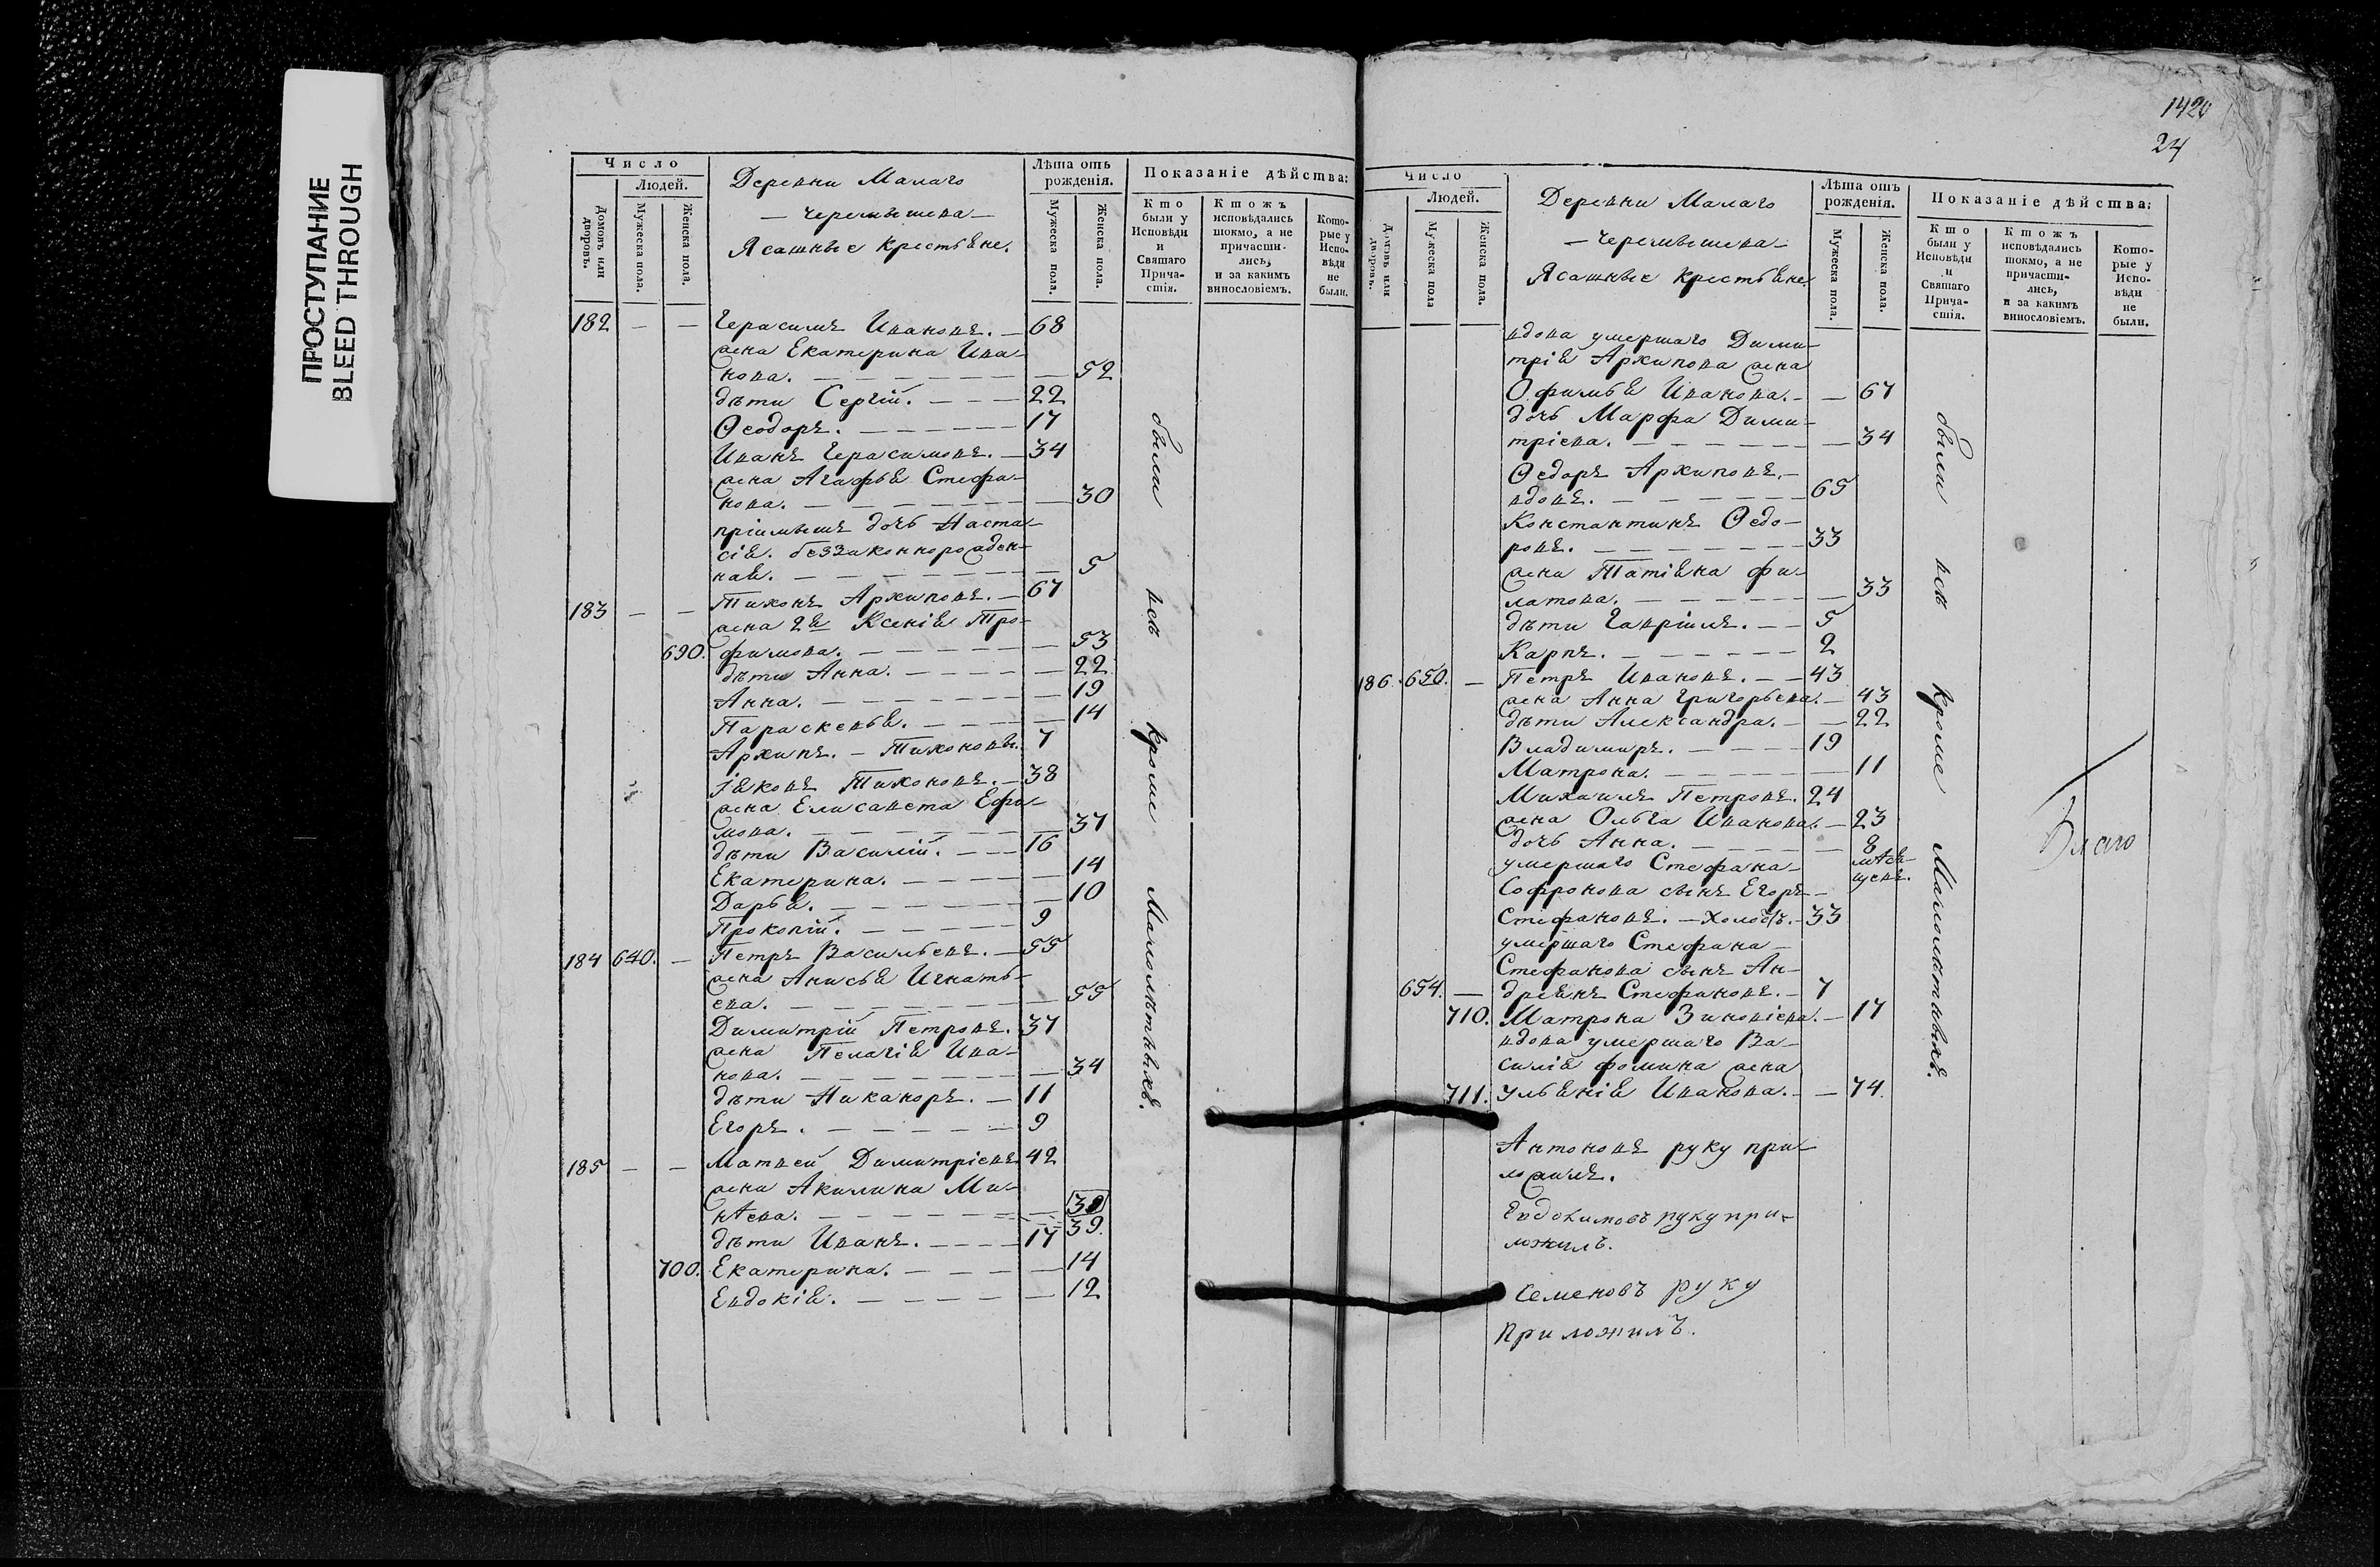 ПРОСТУПАНИЕ
BLEED THROUGH
1420
24
Число
Людей.
Домовъ или дворовъ.
Мужеска пола.
Женска пола.
Деревни Малаго
— Черемышева —
Ясашные Крестьяне.
Лѣта отъ рожденія.
Мужеска пола.
Женска пола.
Показаніе дѣйства:
Кто были у Исповѣди и Святаго Причастія.
Ктожъ исповѣдались токмо, а не причастились, и за какимъ винословіемъ.
Которые у Исповѣди не были.
182 — — Герасимъ Ивановъ. — 68
жена Екатерина Ива-
нова. — 52
дѣти Сергій. — 22
Ѳеодоръ. — 17
Иванъ Герасимовъ. — 34
жена Агафья Стефа-
нова. — 30
пріимышъ дочь Наста-
сія. беззаконнорожден-
ная. — 5
183 — — Тихонъ Архиповъ. — 67
жена 2я Ксенія Тро-
690. фимова. — 53
дѣти Анна. — 22
Анна. — 19
Параскевья. — 14
Архипъ. — Тихоновы. 7
Іяковъ Тихоновъ. — 38
жена Елисавета Ефи-
мова. — 37
дѣти Василій. — 16
Екатерина. — 14
Дарья. — 10
Прокопій. — 9
184 640. — Петръ Васильевъ. — 55
жена Анисья Игнать-
ева. — 55
Димитрій Петровъ. 37
жена Пелагія Ива-
нова. — 34
дѣти Никаноръ. — 11
Егоръ. — 9
185 — — Матвей Димитріевъ 42
жена Акилина Ми-
нѣева. — 30
39.
дѣти Иванъ. — 17
700. Екатерина. — 14
Евдокія. — 12
были всѣ кроме Малолѣтныхъ.
Число
Людей.
Домовъ или дворовъ.
Мужеска пола
Женска пола.
Деревни Малаго
— Черемышева —
Ясашные Крестьяне
Лѣта отъ рожденія.
Мужеска пола.
Женска пола.
Показаніе дѣйства:
Кто были у Исповѣди и Святаго Причастія.
Ктожъ исповѣдались токмо, а не причастились, и за какимъ винословіемъ.
Которые у Исповѣди не были.
вдова умершаго Дими-
трія Архипова жена
Офимья Иванова. — 67
дочь Марфа Дими-
тріева. — 34
Ѳедоръ Архиповъ. —
вдовъ. — 65
Константинъ Ѳедо-
ровъ. — 33
жена Татіяна Фи-
латова. — 33
дѣти Гавріилъ. — 5
Карпъ. — 2
186. 650. — Петръ Ивановъ. — 43
жена Анна Григорьева. — 43
дѣти Александра. — 22
Владимиръ. — 19
Матрона. — 11
Михаилъ Петровъ. 24
жена Ольга Иванова. — 23
дочь Анна. — 8
мѣся-
цевъ.
умершаго Стефана
Софронова сынъ Егоръ —
Стефановъ. — Холостъ. — 33
умершаго Стефана
Стефанова сынъ Ан-
654. — дреянъ Стефановъ. — 7
710. Матрона Зиновіева. — 17
вдова умершаго Ва-
силія Фомина жена
711. Ульянія Иванова. — 74.
были всѣ кроме Малолѣтныхъ.
Благо
Антоновъ руку при-
ложилъ.
Евдокимовъ руку при-
ложилъ.
Семеновъ руку
приложилъ.